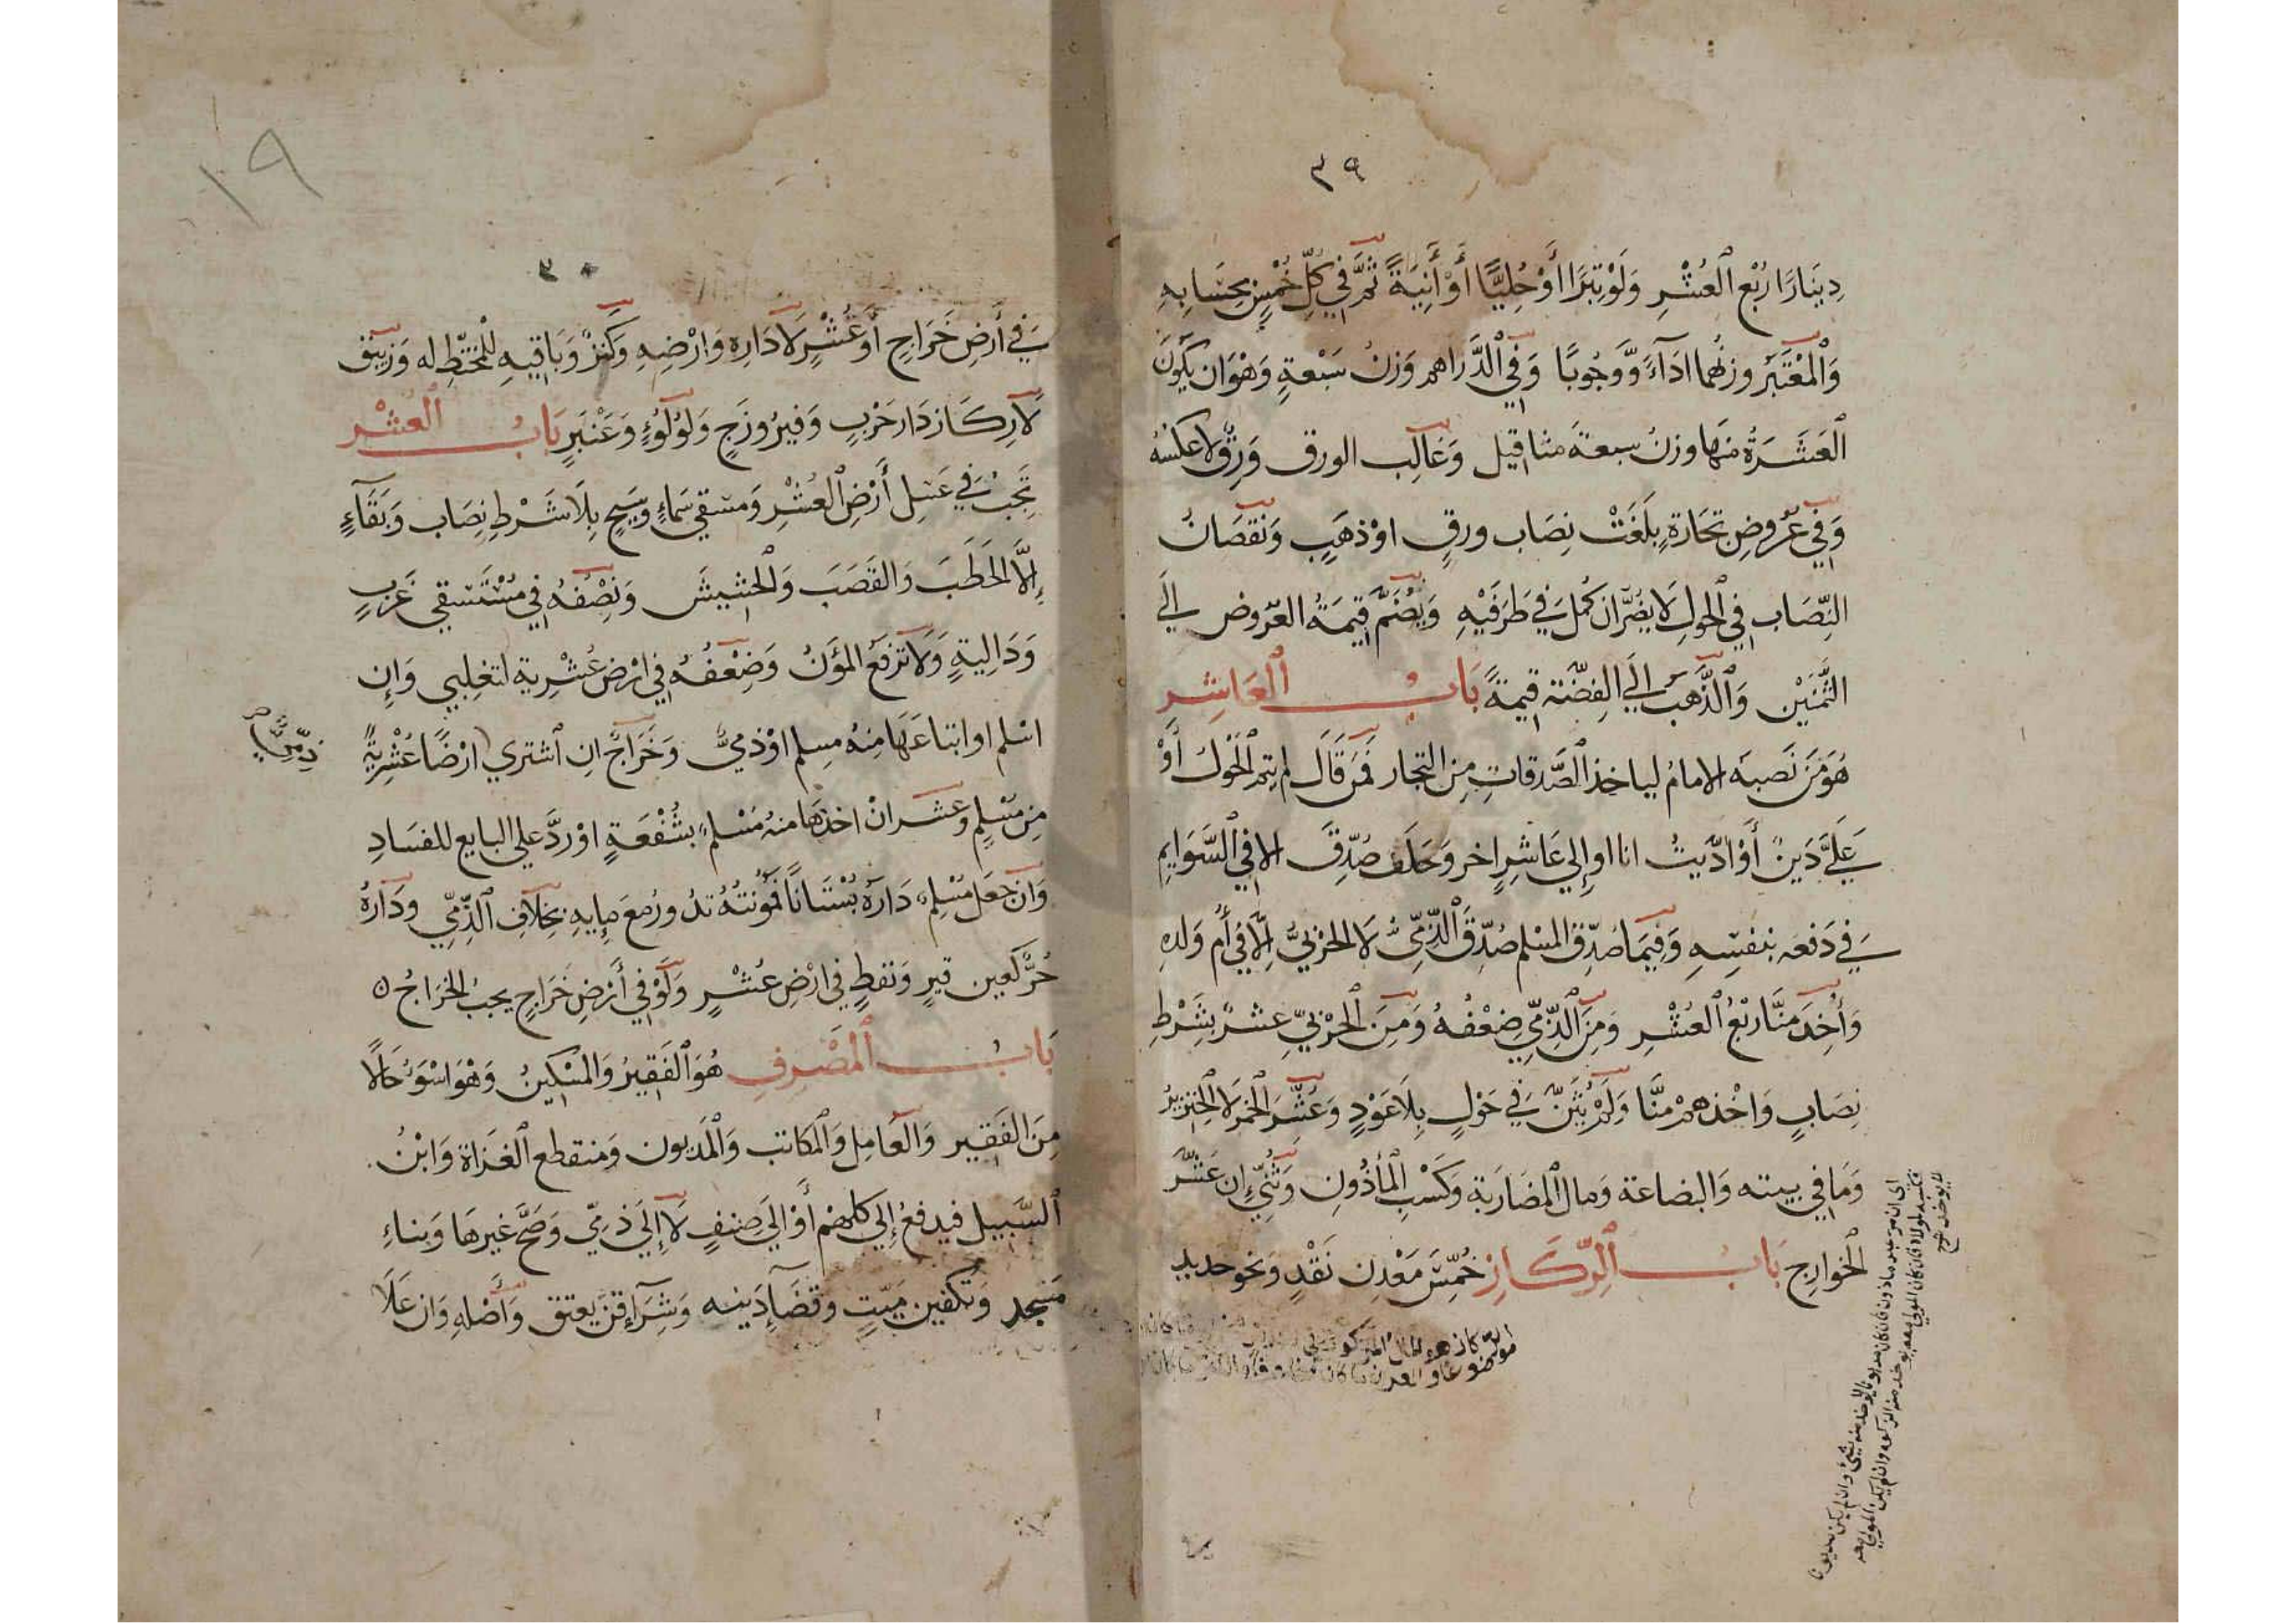 ٣٩
دِينَارًا رُبْعُ الْعُشْرِ وَلَوْ تِبْرًا أَوْ حُلِيًّا أَوْ أَنِيَةً ثُمَّ فِي كُلِّ خُمْسٍ بِحِسَابِهِ
وَالْمُعْتَبَرُ وزنُهُما ادَآءً وَّوُجُوبًا وَفِي الدَّرَاهم وَزنُ سَبْعةٍ وَهْوَ ان يَكُونَ
الْعَشَرَةُ منهَا وزنُ سبعةَ مثاقيل وَغَالِب الورق وَرِقٌ لا عكسُهُ
وَفِي عُرُوضِ تجَارَةٍ بلَغَتْ نِصَاب ورقٍ اوْ ذهَبٍ وَنُقصَانُ
النِّصَاب فِي الْحولِ لَا يضُرّ ان كَمُلَ فِي طَرَفَيْهِ وَيُضَمُّ قِيمَةُ العرُوض الَي
الثَّمَنَيْنِ وَالذَّهبُ الَي الفِضَّة قِيمَةً بَابُ الْعَاشِر
هُوَ مَنْ نَصبَه الامامُ لياخذ الصَّدقاتِ مِن التجار فَمَن قَالَ لم يتم الْحَوْلُ أَوْ
عَلَيَّ دَينٌ أَوْ ادَّيتُ انا او إِلي عَاشِرٍ اخر وَحَلَف صُدِّقَ الا في السَّوَايمِ
فِي دَفعه بنفسِهِ وَفِيمَا صُدِّقَ المسْلم صُدِّقَ الذِّمِّيُّ لَا الحرْبيُّ اِلَّا فِي أُم وَلدِهِ
وَأُخِذَ منَّا رُبْعُ الْعُشْرِ وَمِنَ الذِّمِّيِّ ضِعْفُهُ وَمِنَ الْحَرْبيِّ عشرٌ بِشَرْطِ
نِصَابٍ وَاخْذهمْ منَّا وَلَمْ يُثَنَّ فِي حَوْلٍ بِلَا عَوْدٍ وَعُشِّرَ الْخَمْر لَا الْخِنزِيرُ
وَمَا في بيته وَالبضاعة وَمال الْمضَارَبة وَكَسْبِ الْمَأذُونِ وَثُنِّيَ إِن عَشّرَ
الْخوارِج بَابُ الرِّكَازِ خُمِّسَ مَعْدِن نَقْدٍ وَنحو حديد
اي ان مر عبد ماذون فان كان مديونا لا يوخذ منه شيئ وان لم يكن مديونا
لا يوخذ شرح
١٩
٣٠
فِي أَرضِ خَرَاجٍ أَوْ عُشْرٍ لَا دَارِهِ وَارْضِهِ وَكَنزٌ وَبَاقيهِ للْمُخْتَطِّ له وَزيبَق
لَا رِكَاز دَار حَرْبٍ وَفَيْرُوزَجٍ وَلُؤْلُؤٍ وَعَنْبَرٍ بَابُ الْعُشْر
تَجِبُ فِي عَسَلِ أَرْضِ الْعُشْرِ وَمسْقي سَمَاءٍ وَسَيحٍ بِلَا شَرْطِ نِصَاب وَبَقَآءٍ
إِلَّا الْحَطَبَ وَالقَصَبَ وَالْحَشِيشَ وَنِصْفُهُ فِي مُسْتَسْقي غَرْبٍ
وَدَالِيةٍ وَلَا تُرْفَعُ المُؤَنُ وَضِعْفُهُ فِي ارْضٍ عُشْرِيةٍ لتغلِبي وَإِن
اسْلم او ابتاعَهَا مِنهُ مسلم اوْ ذميٌّ وَخَرَاجٌ اِن اشتري ارْضًا عُشْرِيَّةً
ذِمِّيٌّ صح
مِن مُسْلِمٍ وعَشر انْ اخذهَا منهُ مُسْلمٌ بشُفْعَةٍ اوْ ردَّ علي البايع للفسَادِ
وَان جعَل مُسْلِمٌ دَارهُ بُسْتَانًا فَمُونَتُهُ تدُورُ معَ مايِهِ بِخِلَافِ الذِّمِّيِ وَدَارُهُ
حُرٌّ كعين قيرٍ وَنفطٍ فِي ارْضِ عُشْرٍ وَلَوْ فِي أَرْضِ خَرَاجٍ يجبُ الْخَرَاجُ ٥
بَابُ الْمَصْرِفِ هُوَ الْفَقِيرُ وَالمسْكِينُ وَهْوَ اسْوَءُ حَالًا
مِنَ الفَقِيرِ وَالْعَامِل وَالْمكاتب وَالْمَديون وَمنقطع الْغزَاة وَابْنُ
السَّبِيل فيدفعُ إِلي كلهمْ أَوْ الَي صِنفٍ لَا إِلَي ذمِّي وَصَحَّ غيرهَا وَبناءِ
مَسْجد وَتكفِين مَيّتٍ وقضآءِ دَينه وَشِرَآءِ قِنٍّ يعتق وَأَصْلِهِ وَان عَلَا